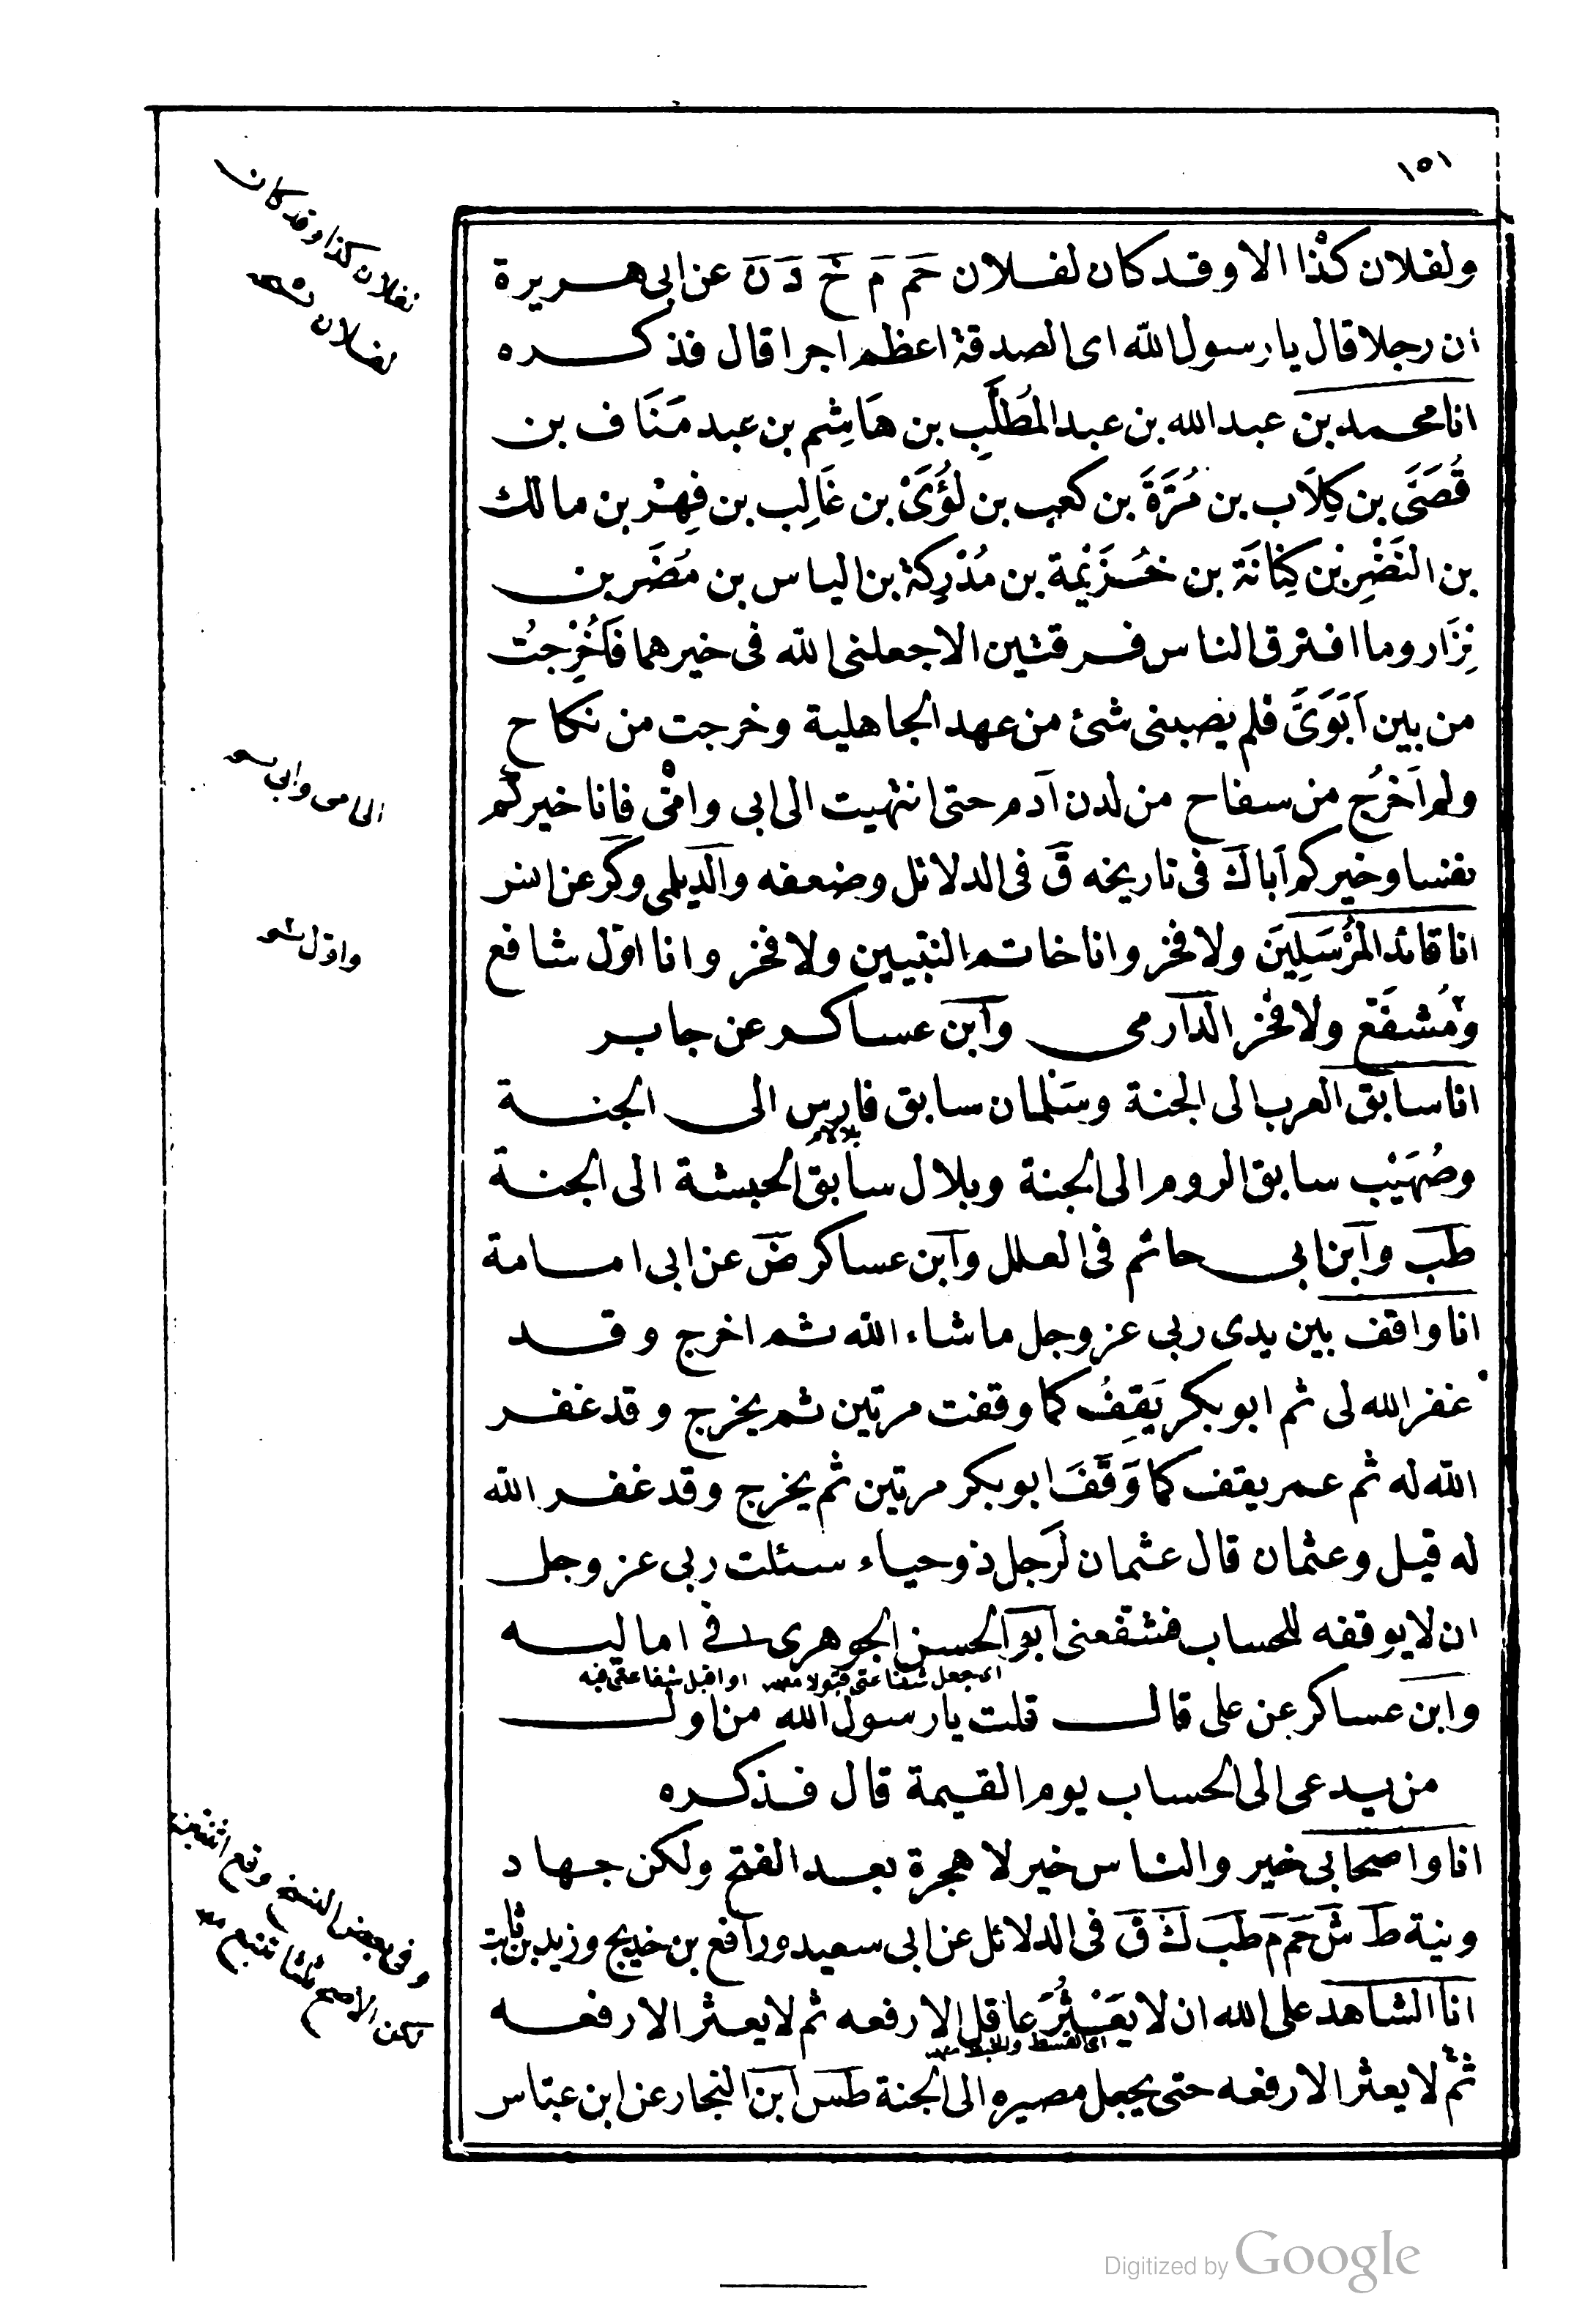 ١٥١
ولفلان كذا الا وقد كان لفلان حم م خ د ن عن ابى هريرة
ان رجلا قال يا رسول الله اى الصدقة اعظم اجرا قال فذكره
انا محمد بن عبد الله بن عبد المُطَلِّبِ بن هَاشِم بن عبد مَنَاف بن
قُصَىَّ بن كِلَاب بن مُرَّةَ بن كعب بن لُؤَىّ بن غَالِب بن فِهْر بن مالك
بن النَضْرِ بن كِنَانَة بن خُزَيْمة بن مُدْرِكة بن الياس بن مُضَر بن
نِزَار وما افترق الناس فرقتين الا جعلنى الله فى خيرهما فَاُخْرِجتُ
من بين اَبَوَىَّ فلم يصبنى شئ من عهد الجاهلية وخرجت من نكاح
ولم اَخرُج من سفاح من لدن آدم حتى انتهيت الى ابى وامّى فانا خيركم
نفسا وخيركم اَبا ك فى تاريخه ق فى الدلائل وضعفه والديلمى وكر عن انس
انا قائد المُرْسَلِينَ ولا فخر وانا خاتم النبيين ولا فخر وانا اوّل شافع
ومُشفَّع ولا فخر الدارمى وابن عساكر عن جابر
انا سابق العرب الى الجنة وسَلْمان سابق فارس الى الجنة
وصُهَيْب سابق الروم الى الجنة وبلال سابق الحبشة الى الجنة
طب وابن ابى حاتم فى العلل وابن عساكر ض عن ابى امامة
انا واقف بين يدى ربى عز وجل ما شاء الله ثم اخرج وقد
غفر الله لى ثم ابو بكر يَقِفُ كما وقفت مرتين ثم يخرج وقد غفر
الله له ثم عمر يقف كما وَقَفَ ابو بكر مرتين ثم يخرج وقد غفر الله
له قيل وعثمان قال عثمان لرَجل ذو حياء سئلت ربى عز وجل
ان لا يوقفه للحساب فشفعنى ابو الحسن الجوهرى فى اماليه
اى جعل شفاعتى قبولا منه او اقبل شفاعتى فيه
وابن عساكر عن على قال قلت يا رسول الله من اول
من يدعى الى الحساب يوم القيمة قال فذكره
انا واصحابى خير والناس خير لا هجرة بعد الفتح ولكن جهاد
ونية ط ش حم م طب ك ق فى الدلائل عن ابى سعيد ورافع بن خديج وزيد بن ثابت
انا الشاهد على الله ان لا يَعْثُرَ عاقل الا رفعه ثم لا يعثر الا رفعه
ثم لا يعثر الا رفعه حتى يجعل مصيره الى الجنة طس ابن النجار عن ابن عبّاس
لفلان كذا وقد كان
لفلان
الى امى وابى
واوّل
وفى بعض النسخ وقع اثنين
لكن الاصح ثلثا تتبع
Digitized by Google